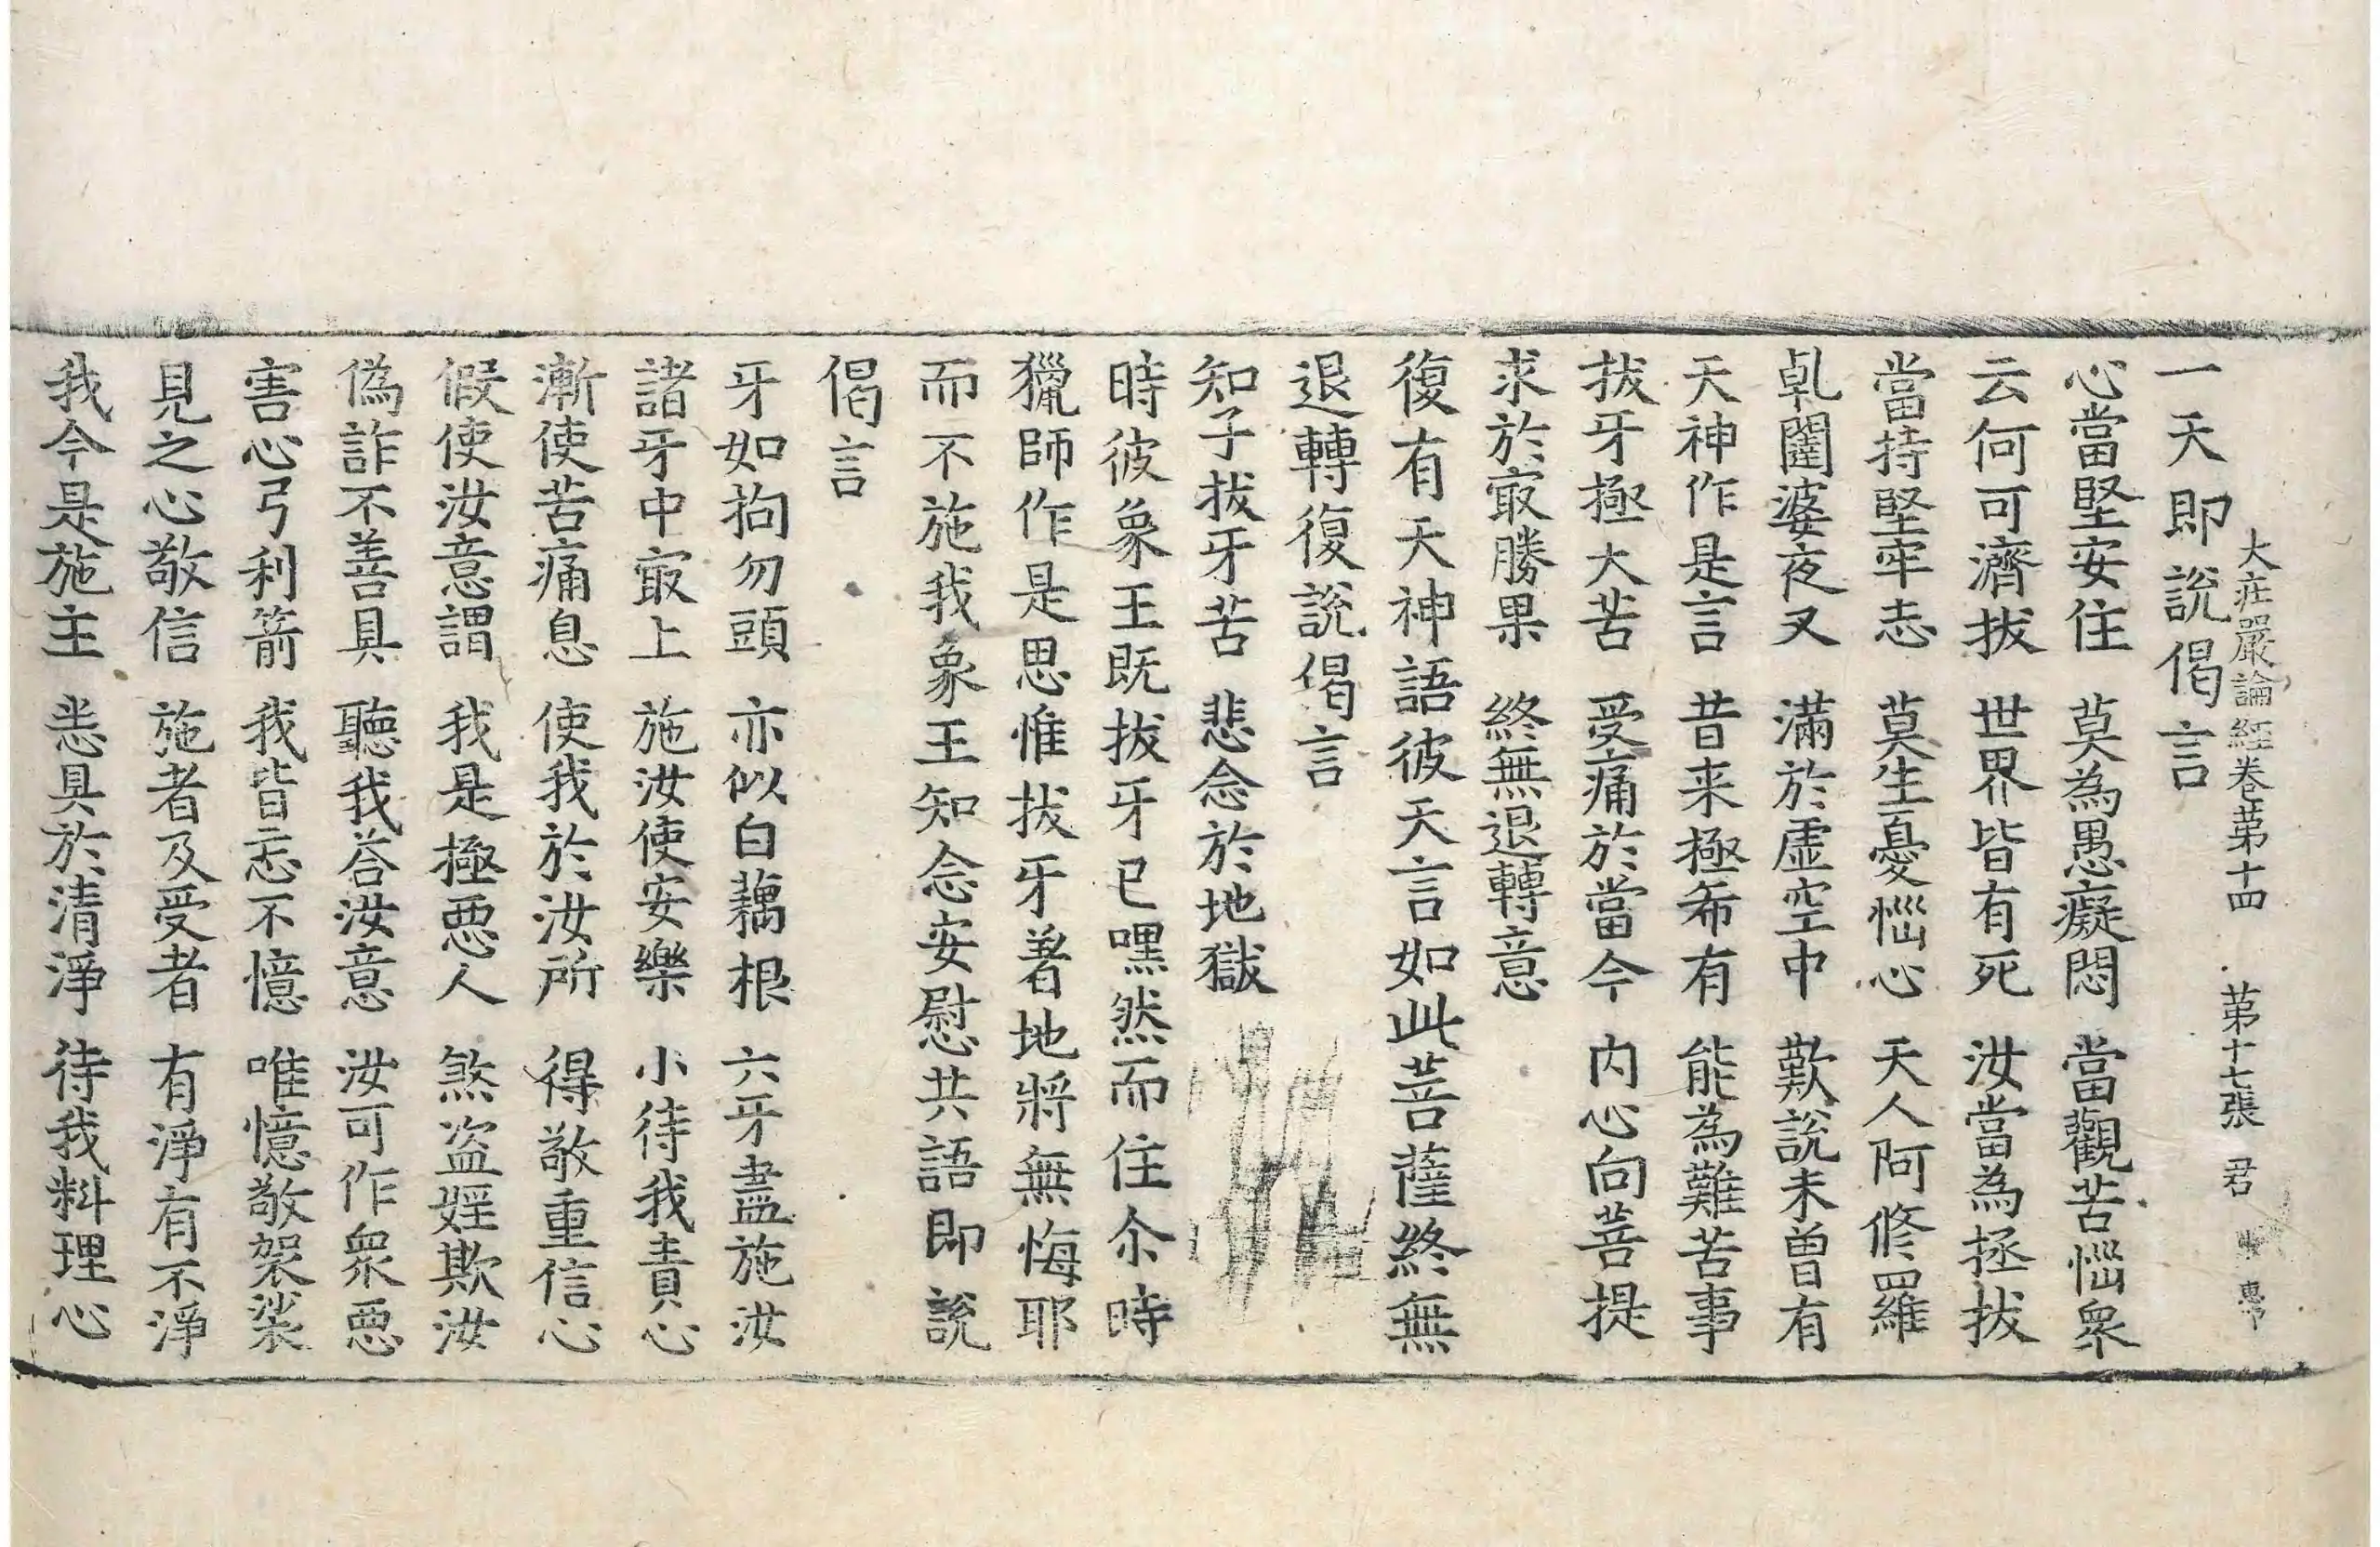 大庄嚴論経卷苐十四 苐十七張 君
一天即說偈言
心當堅安住 莫為愚癡悶 當觀苦惱衆
云何可濟拔 世界皆有死 汝當為拯拔
當持堅牢志 莫生憂惱心 天人阿脩羅
乹闥婆夜叉 滿於虛空中 歎說未曾有
天神作是言 昔来極希有 能為難苦事
拔牙極大苦 受痛於當今 内心向菩提
求於㝡勝果 終無退轉意
復有天神語彼天言如此菩薩終無
退轉復說偈言
知子拔牙苦 悲念於地獄
時彼象王既拔牙已嘿然而住尒時
獵師作是思惟拔牙著地將無悔耶
而不施我象王知念安慰共語即說
偈言
牙如拘勿頭 亦似白藕根 六牙盡施汝
諸牙中㝡上 施汝使安樂 小待我責心
漸使苦痛息 使我於汝所 得敬重信心
假使汝意謂 我是極惡人 煞盗婬欺汝
偽詐不善具 聽我荅汝意 汝可作衆惡
害心弓利箭 我皆忘不憶 唯憶敬袈裟
見之心敬信 施者及受者 有淨有不淨
我今是施主 悉具於清淨 待我料理心